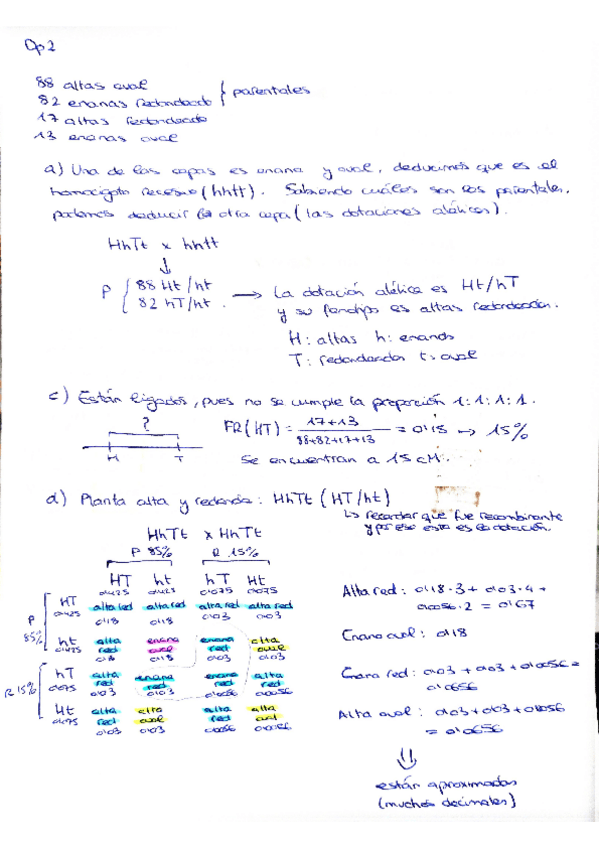 Op 2
88 altas oval
82 enanas redondeado } parentales
17 altas redondeado
13 enanas oval
a) Una de las cepas es enana y oval, deducimos que es el
homocigoto recesivo (hhtt). Sabiendo cuáles son los parentales,
podemos deducir la otra cepa (las dotaciones alélicas).
HhTt x hhtt
P { 88 Ht/ht
82 hT/ht. → La dotación alélica es Ht/hT
y su fenotipo es altas redondeadas.
H: altas h: enanas
T: redondeadas t: oval
c) Están ligados, pues no se cumple la proporción 1:1:1:1.
?
H T
FR(HT) = 17+13 / 88+82+17+13 = 0'15 → 15%
Se encuentran a 15 cM.
d) Planta alta y redonda: HhTt (HT/ht)
↳ recordar que fue recombinante
y por eso esta es la dotación.
HhTt x HhTt
P 85% R 15%
HT ht hT Ht
0'425 0'425 0'075 0'075
P 85%
HT 0'425 alta red alta red alta red alta red
0'18 0'18 0'03 0'03
ht 0'425 alta red enana oval enana red alta oval
0'18 0'18 0'03 0'03
R 15%
hT 0'075 alta red enana red enana red alta red
0'03 0'03 0'0056 0'0056
Ht 0'075 alta red alta oval alta red alta oval
0'03 0'03 0'0056 0'0056
Alta red: 0'18·3 + 0'03·4 +
0'0056·2 = 0'67
Enano oval: 0'18
Enana red: 0'03 + 0'03 + 0'0056 =
0'0656
Alta oval: 0'03 + 0'03 + 0'0056
= 0'0656
están aproximadas
(muchos decimales)